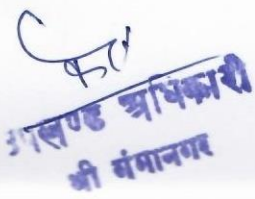 उपखण्ड अधिकारी
श्री गंगानगर